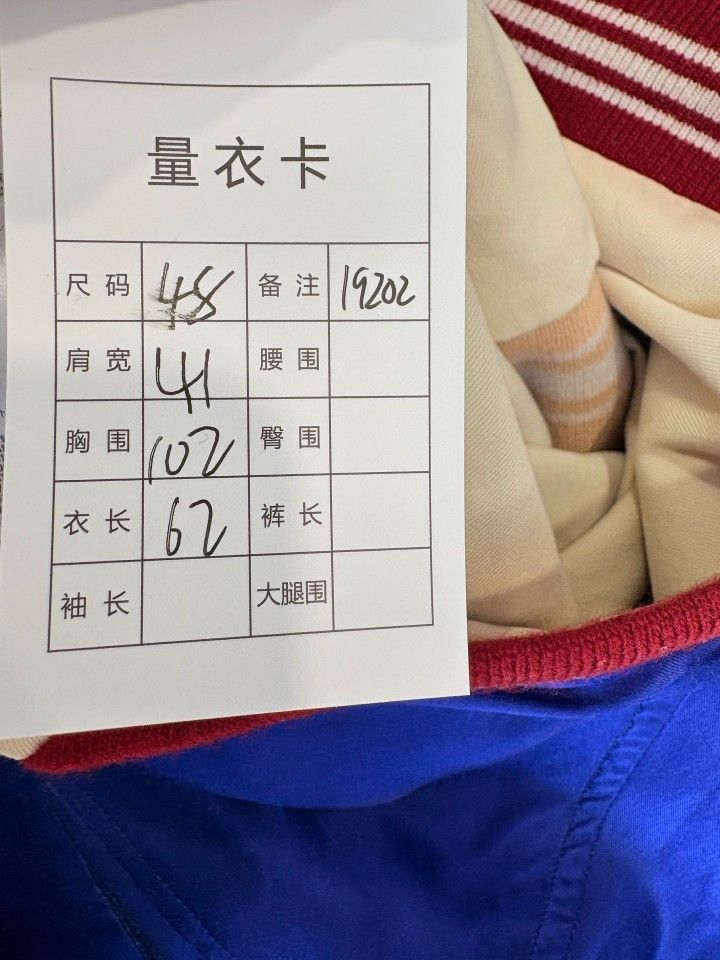 量衣卡
尺码 48 备注 19202
肩宽 41 腰围
胸围 102 臀围
衣长 62 裤长
袖长 大腿围